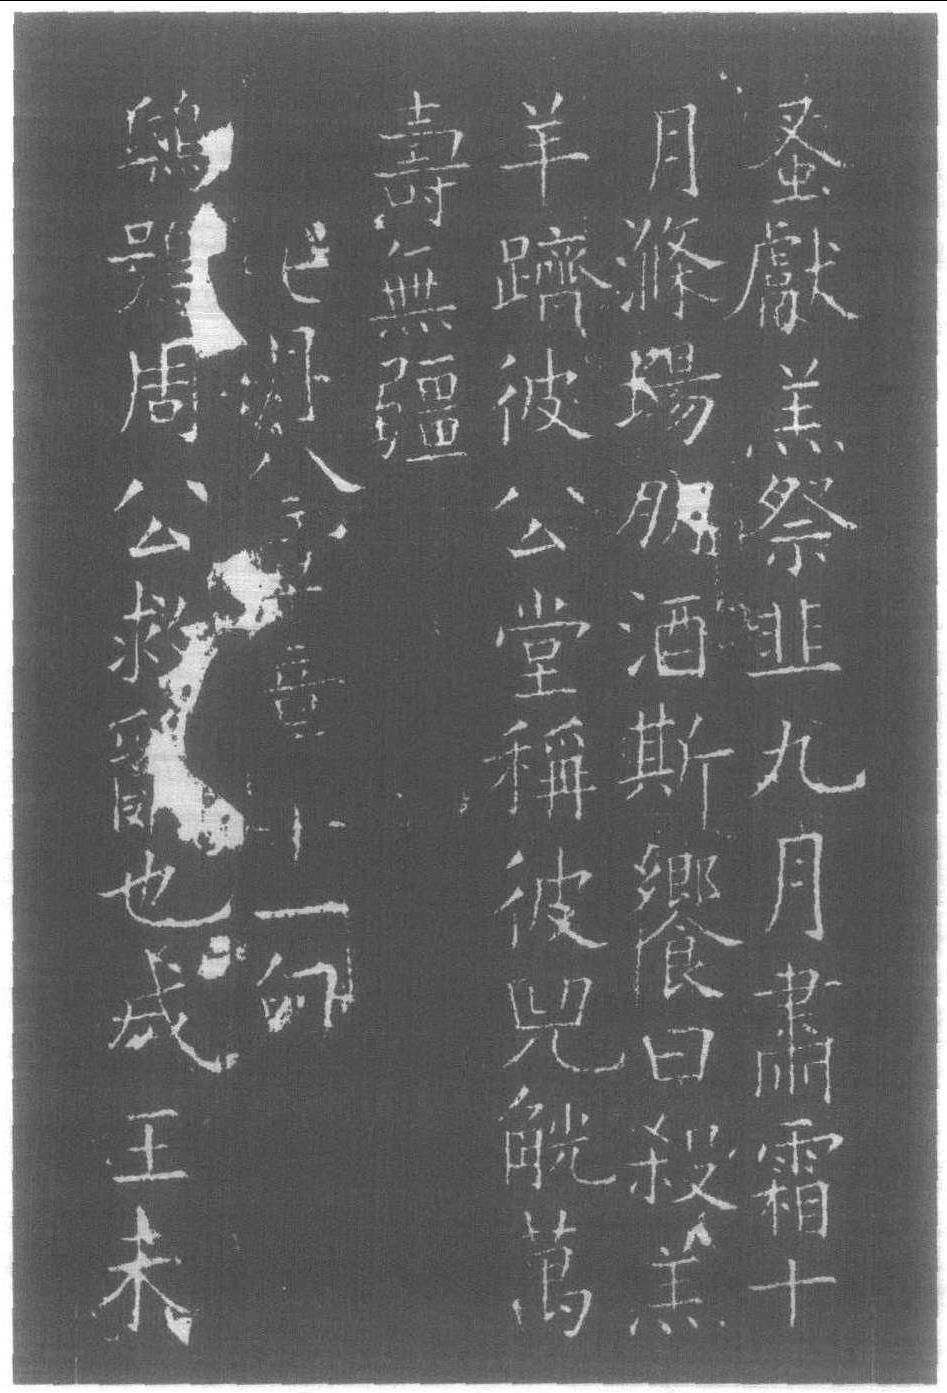 蚤獻羔祭韭九月肅霜十
月滌場朋酒斯饗曰殺羔
羊躋彼公堂稱彼兕觥萬
壽無疆
七月八章章十一句
鴟鴞周公救亂也成王未